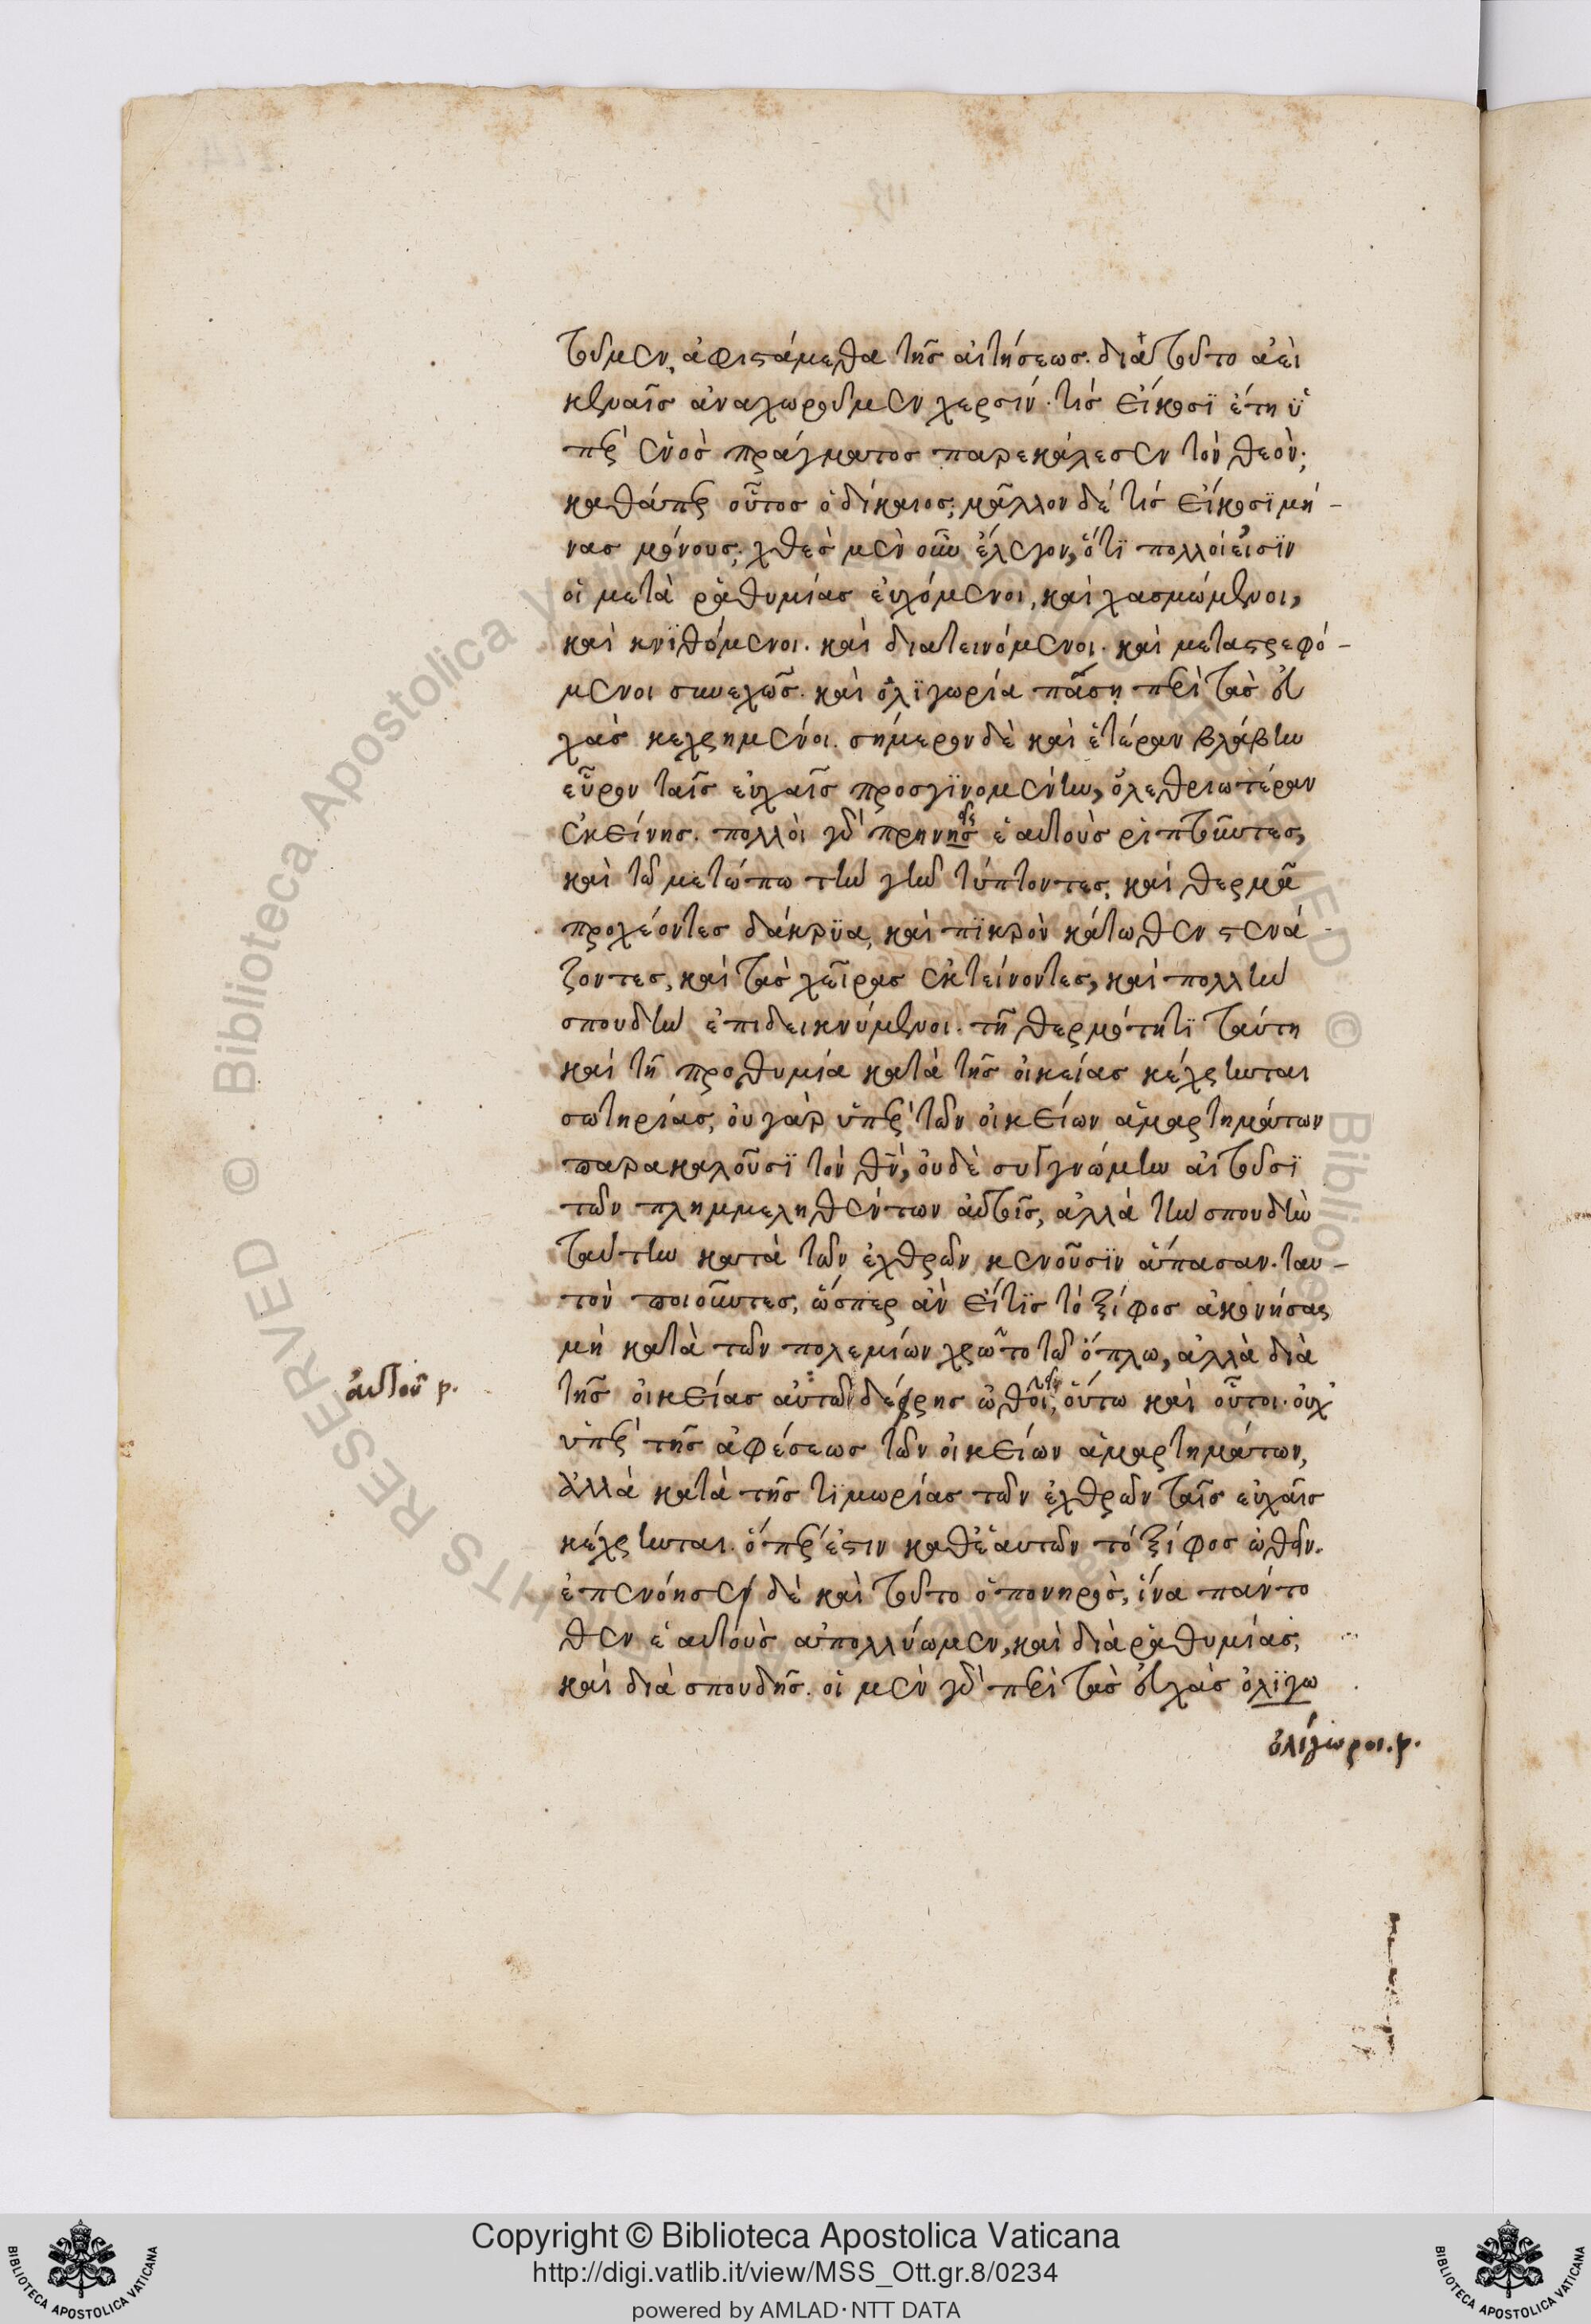 τοῦμεν, ἀφιστάμεθα τῆς αἰτήσεως. διὰ τοῦτο ἀεὶ
κεναῖς ἀναχωροῦμεν χερσίν. τίς εἴκοσϊ ἔτη ὑ
πὲρ ἑνὸς πράγματος παρεκάλεσεν τὸν θεὸν;
καθάπερ οὗτος ὁ δίκαιος; μᾶλλον δέ τίς εἴκοσϊ μῆ-
νας μόνους; χθὲς μὲν οὖν ἔλεγον, ὅτϊ πολλοί εἰσϊν
οἱ μετὰ ῥαθυμίας εὐχόμενοι, καὶ χασμώμενοι,
καὶ κνϊθόμενοι. καὶ διατεινόμενοι. καὶ μεταστρεφό-
μενοι συνεχῶς. καὶ ὀλϊγωρία πάσῃ περὶ τὰς εὐ
χὰς κεχρημένοι. σήμερον δὲ καὶ ἑτέραν βλάβην
εὗρον ταῖς εὐχαῖς προσγϊνομένην, ὀλεθριωτέραν
ἐκείνης. πολλοὶ γὰρ πρηνῆς ἑαυτοὺς ῥιπτοῦντες,
καὶ τῶ μετώπω τὴν γῆν τύπτοντες, καὶ θερμὰ
προχέοντες δάκρϋα, καὶ πϊκρὸν κάτωθεν στενά
ζοντες, καὶ τὰς χεῖρας ἐκτείνοντες, καὶ πολλὴν
σπουδὴν ἐπιδεικνύμενοι. τῆ θερμότητϊ ταύτη
καὶ τῆ προθυμία κατὰ τῆς οἰκείας κέχρηνται
σωτηρίας, οὐ γὰρ ὑπὲρ τῶν οἰκείων ἁμαρτημάτων
παρακαλοῦσϊ τὸν θν, οὐδὲ συγγνώμην αἰτοῦσϊ
τῶν πλημμεληθέντων αὐτοῖς, ἀλλὰ τὴν σπουδὴν
ταύτην κατὰ τῶν ἐχθρῶν κενοῦσϊν ἅπασαν. ταυ-
τὸν ποιοῦντες, ὥσπερ ἂν εἴ τϊς τὸ ξίφος ἀκονήσας
μὴ κατὰ τῶν πολεμίων χρῶτο τῶ ὅπλω, ἀλλὰ διὰ
αὐτοῦ ρ.
τῆς οἰκείας αὐτῶν δέρρης ὠθοῖ, οὕτω καὶ οὗτοι. οὐχ
ὑπὲρ τῆς ἀφέσεως τῶν οἰκείων ἁμαρτημάτων,
ἀλλὰ κατὰ τῆς τϊμωρίας τῶν ἐχθρῶν ταῖς εὐχαῖς
κέχρηνται. ὅπερ ἐστιν καθἑαυτῶν τὸ ξίφος ὠθεῖν.
ἐπενόησεν δὲ καὶ τοῦτο ὁ πονηρὸς, ἵνα πάντο
θεν ἑαυτοὺς ἀπολλύωμεν, καὶ διὰ ῥαθυμίας,
καὶ διὰ σπουδῆς. οἱ μὲν γὰρ περὶ τὰς εὐχὰς ὀλϊγω
ὀλίγωροι. ρ.
Copyright © Biblioteca Apostolica Vaticana
http://digi.vatlib.it/view/MSS_Ott.gr.8/0234
powered by AMLAD·NTT DATA